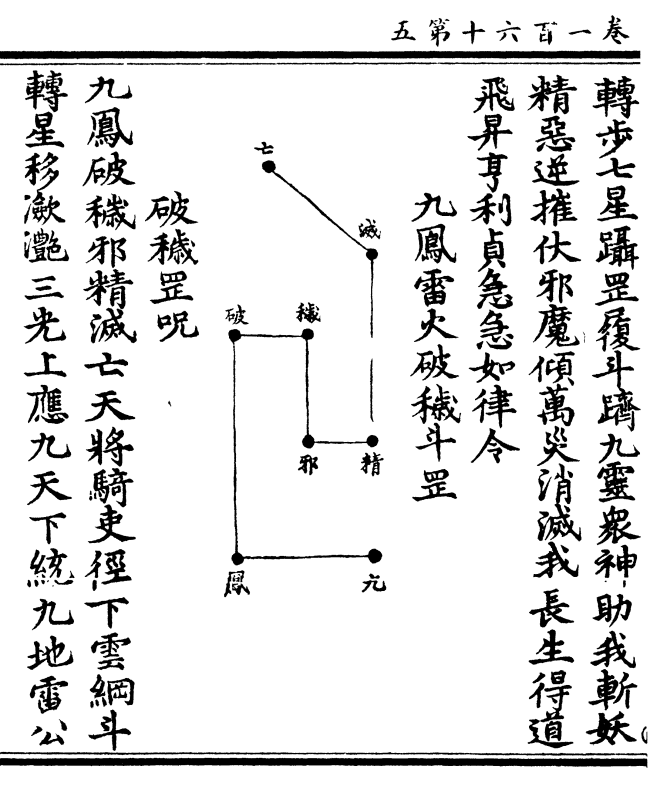 卷一百六十第五
轉步七星躡罡履斗躋九靈衆神助我斬妖
精惡逆摧伏邪魔傾萬災消滅我長生得道
飛昇亨利貞急急如律令
九鳳雷火破穢斗罡
亡
滅
穢
破
精
邪
九
鳳
破穢罡呪
九鳳破穢邪精滅亡天將騎吏徑下雲綱斗
轉星移瀲灔三光上應九天下統九地雷公